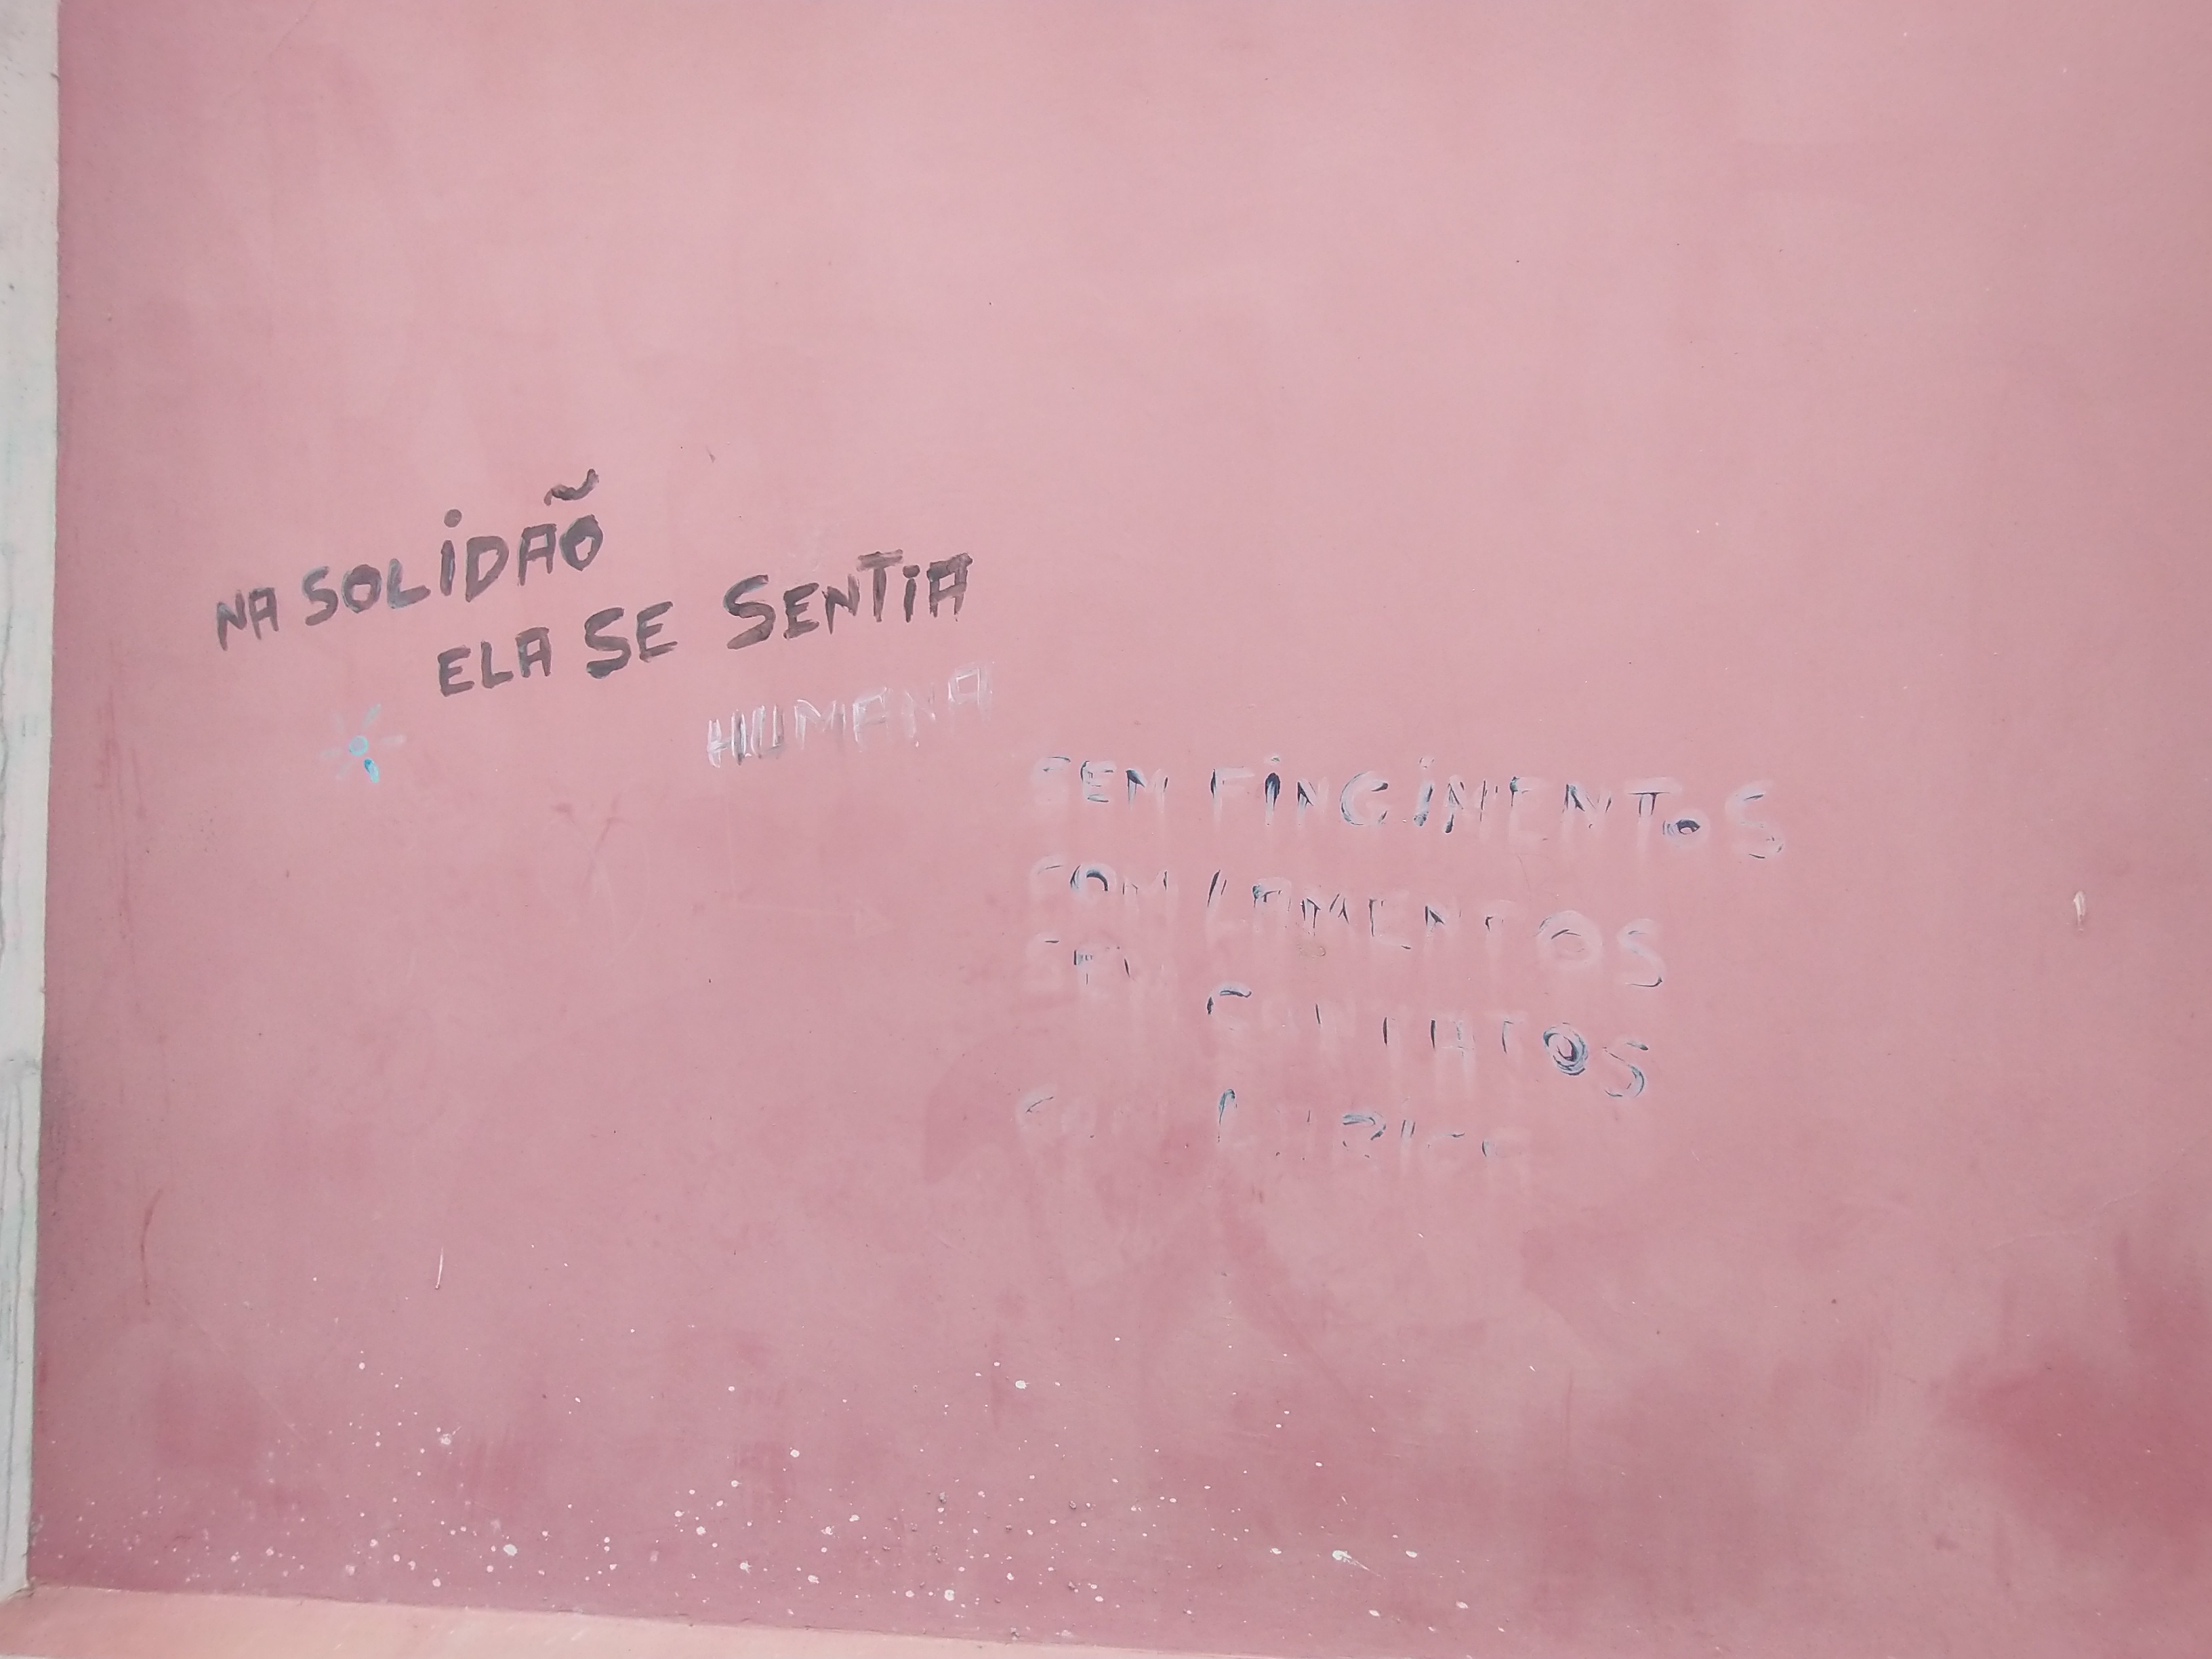 NA SOLIDÃO
ELA SE SENTIA
HUMANA
SEM FINGIMENTOS
COM LAMENTOS
SEM CONTATOS
COM